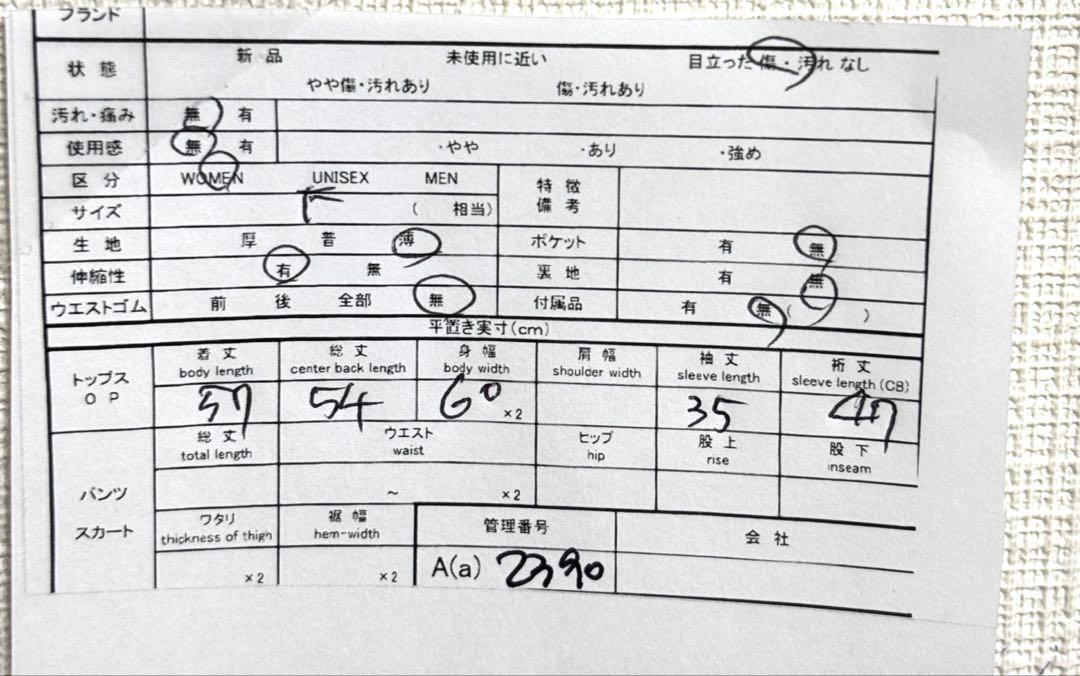 ブランド
状 態 新 品 未使用に近い 目立った 傷・汚れ なし
やや傷・汚れあり 傷・汚れあり
汚れ・痛み 無 有
使用感 無 有 ・やや ・あり ・強め
区 分 WOMEN UNISEX MEN 特 徴
備 考
サイズ ( 相当)
生 地 厚 普 薄 ポケット 有 無
伸縮性 有 無 裏 地 有 無
ウエストゴム 前 後 全部 無 付属品 有 無 ( )
平置き実寸(cm)
トップス
O P
着 丈 総 丈 身 幅 肩 幅 袖 丈 裄 丈
body length center back length body width shoulder width sleeve length sleeve length (CB)
57 54 60 ×2 35 47
パンツ
スカート
総 丈 ウエスト ヒップ 股 上 股 下
total length waist hip rise inseam
~ ×2
ワタリ 裾 幅 管理番号 会 社
thickness of thigh hem-width
×2 ×2 A(a) 2390